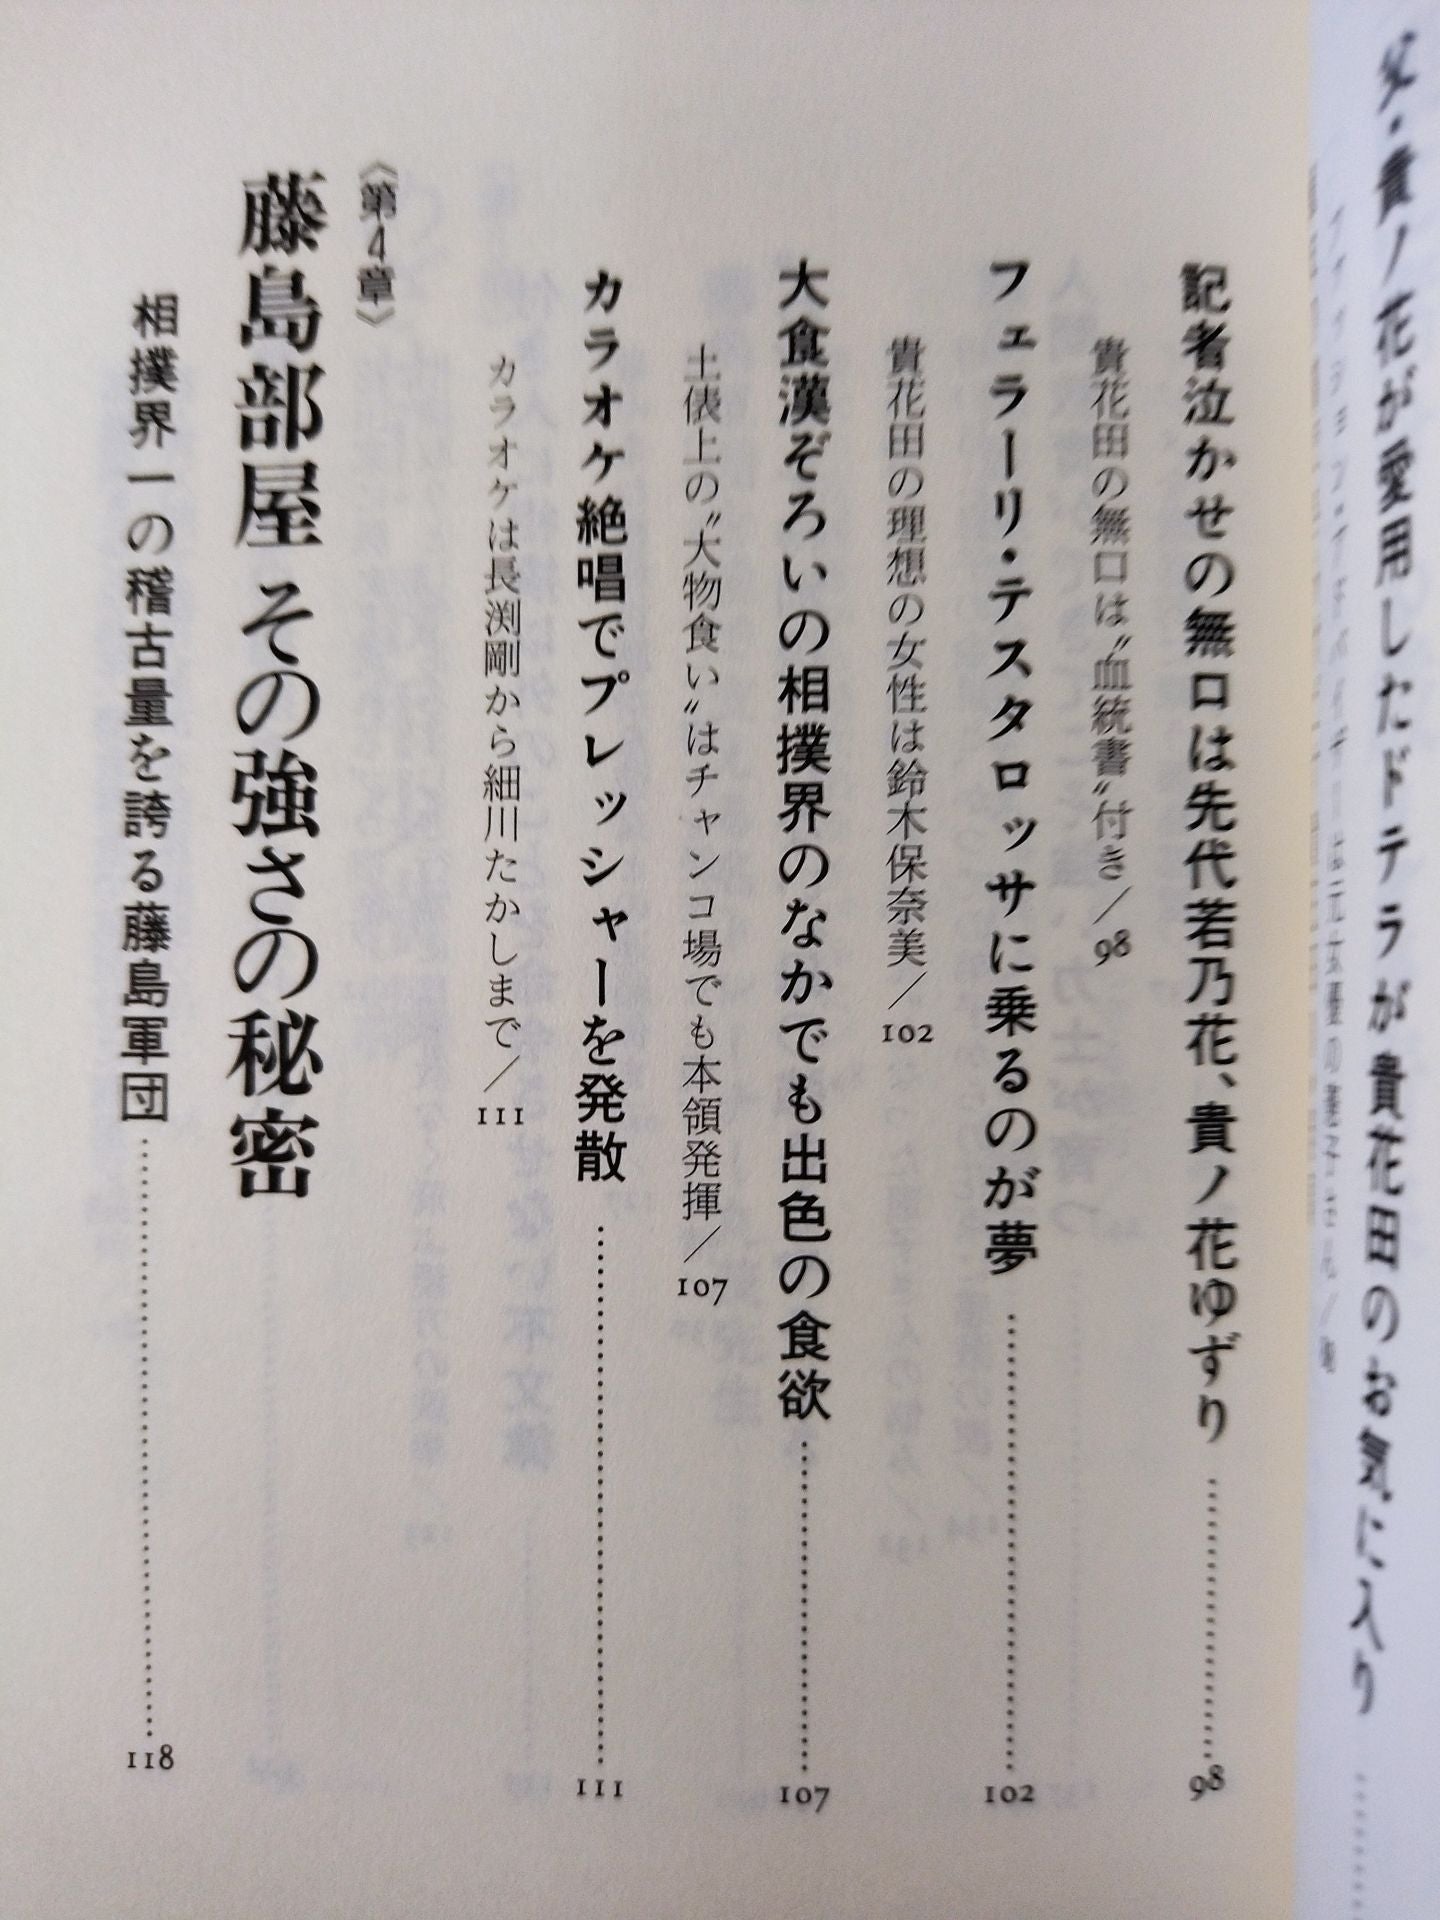 父・貴ノ花が愛用したドテラが貴花田のお気に入り
記者泣かせの無口は先代若乃花、貴ノ花ゆずり………98
貴花田の無口は〝血統書〟付き／98
フェラーリ・テスタロッサに乗るのが夢………102
貴花田の理想の女性は鈴木保奈美／102
大食漢ぞろいの相撲界のなかでも出色の食欲………107
土俵上の〝大物食い〟はチャンコ場でも本領発揮／107
カラオケ絶唱でプレッシャーを発散………111
カラオケは長渕剛から細川たかしまで／111
〈第4章〉
藤島部屋 その強さの秘密
相撲界一の稽古量を誇る藤島軍団………118